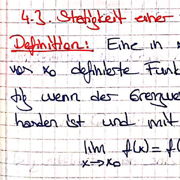 4.3. Stetigkeit einer
Definition: Eine in x
von x₀ definierte Funk
tig wenn der Grenzwe
handen ist und mit
lim f(x) = f(
x→x₀